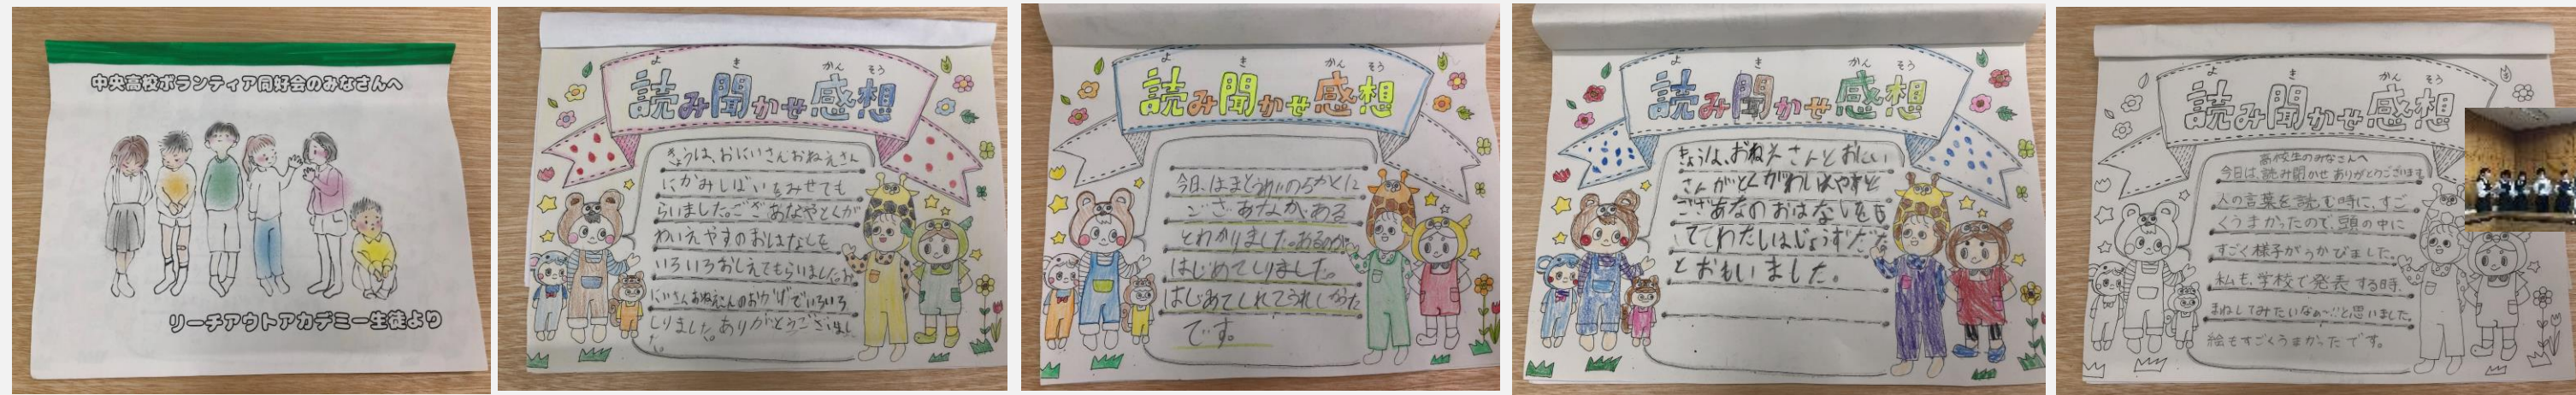 中央高校ボランティア同好会のみなさんへ
リーチアウトアカデミー生徒より
よ き かん そう
読み聞かせ感想
きょうは、おにいさんおねえさん
にかみしばいをみせても
らいました。ござあなやとくが
わいえやすのおはなしを
いろいろおしえてもらいました。お
にいさんおねえさんのおかげでいろいろ
しりました。ありがとうございまし
た。
よ き かん そう
読み聞かせ感想
今日、はまとうめいのちかくに
ござあなが、ある
とわかりました。あるのが、
はじめてしりました。
はじめてしれてうれしかった
です。
よ き かん そう
読み聞かせ感想
きょうは、おねえさんとおにい
さんがとくがわいえやすと
ござあなのおはなしをし
ててわたしはじょうずだな
とおもいました。
よ き かん そう
読み聞かせ感想
高校生のみなさんへ
今日は、読み聞かせありがとうございます
人の言葉を読む時に、すご
くうまかったので、頭の中に
すごく様子がうかびました。
私も、学校で発表する時、
まねしてみたいなぁ〜!!と思いました。
絵もすごくうまかったです。